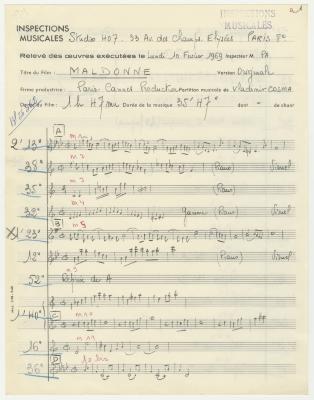 INSPECTIONS
MUSICALES
INSPECTIONS
MUSICALES Studio H07. 33 Av. des Champs Elysées. PARIS 8e
Relevé des œuvres exécutées le Lundi 10 Février 1969 Inspecteur M. PA
Titre du Film : MALDONNE Version Originale
Firme productrice : Paris Cannes Production Partition musicale de Vladimir COSMA
Durée du Film : 1h 47 mn Durée de la musique 35' 47" dont - de chant
A
m 1
2' 13"
m 2
35" (Piano) Visuel
m 3
35" (Piano)
m 4
32" (Piano) Visuel
B
m 5
23"
12" (Piano) Visuel
52" Reprise de A
C
m 10
1' 40"
m 11
16"
D
36"